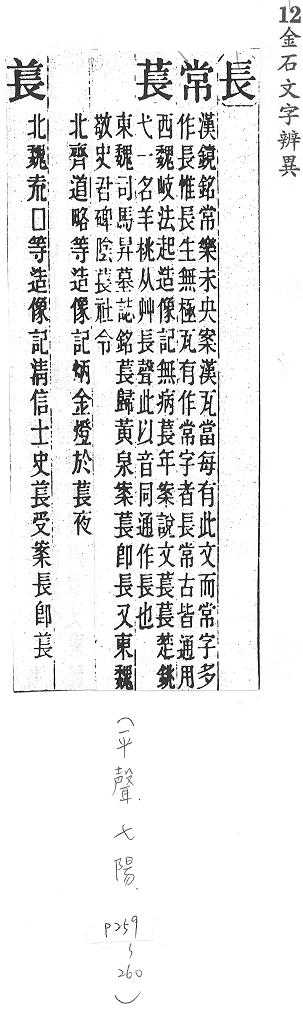 12金石文字辨異
長
常 漢鏡銘常樂未央案漢瓦當每有此文而常字多
作長惟長生無極瓦有作常字者長常古皆通用
萇 西魏岐法起造像記無病萇年案說文萇萇楚銚
弋一名羊桃从艸長聲此以音同通作長也
東魏司馬昇墓誌銘萇歸黃泉案萇卽長又東魏
敬史君碑陰萇社令
北齊道略等造像記炳金燈於萇夜
北魏 □等造像記清信士史萇受案長卽萇
(平聲 七陽
P259
~
260)